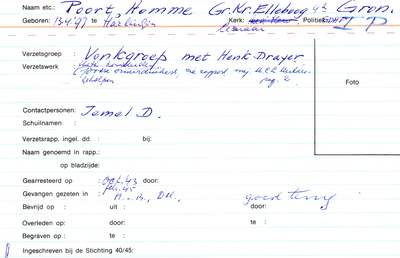 Naam etc.: Poort, Homme Gr. Kr. Elleboog 4a Gron.
Geboren: 13-4-97 te Harlingen Kerk: Politiek: IP
leraar
Verzetsgroep : Vonkgroep met Henk Drayer
Verzetswerk :
Joodse onderduikers, zie rapport mej.
geholpen pag. 2
Foto
Contactpersonen: Jemel D.
Schuilnamen :
Verzetsrapp. ingel. dd. : bij:
Naam genoemd in rapp.:
op bladzijde:
Gearresteerd op : okt. 43 door:
Gevangen gezeten in : feb. 45
goed terug
Bevrijd op : uit : door:
Overleden op: door: te :
Begraven op : te :
Ingeschreven bij de Stichting 40/45: